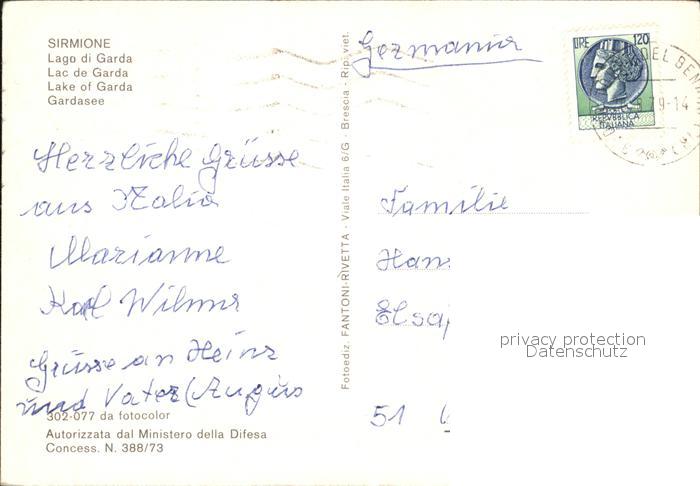 SIRMIONE
Lago di Garda
Lac de Garda
Lake of Garda
Gardasee
Herzliche Grüsse
aus Italia
Marianne
Karl Wilma
Grüsse an Heinz
und Vater (Augus
302-077 da fotocolor
Autorizzata dal Ministero della Difesa
Concess. N. 388/73
Fotoediz. FANTONI-RIVETTA - Viale Italia 6/G - Brescia - Rip. viet.
Germania
LIRE 120
REPVBBLICA
ITALIANA
DEL GE
79-14
Familie
Han
Elsa
51
privacy protection
Datenschutz